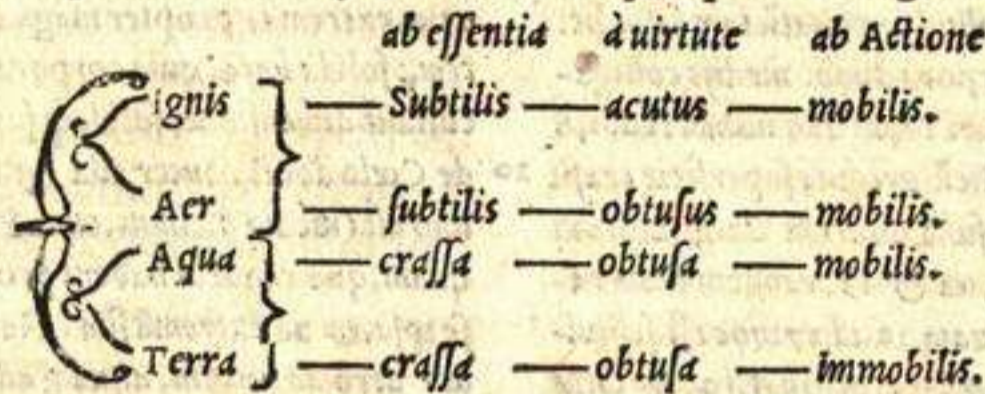 ab eſſentia à uirtute ab Actione
ignis — Subtilis — acutus — mobilis.
Aer — ſubtilis — obtuſus — mobilis.
Aqua — craſſa — obtuſa — mobilis.
Terra — craſſa — obtuſa — immobilis.